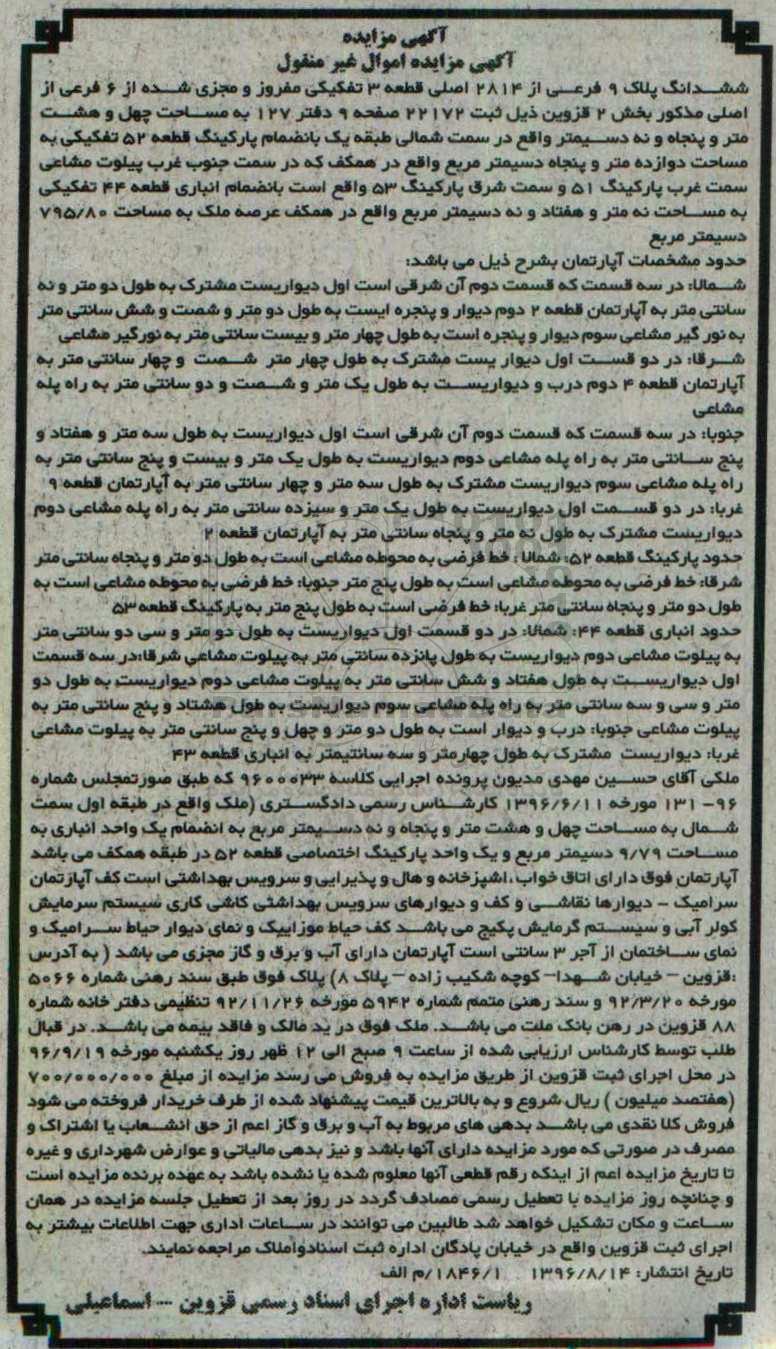 آگهی مزایده
آگهی مزایده اموال غیر منقول
ششدانگ پلاک ۹ فرعی از ۲۸۱۴ اصلی قطعه ۳ تفکیکی مفروز و مجزی شده از ۶ فرعی از
اصلی مذکور بخش ۲ قزوین ذیل ثبت ۲۲۱۷۲ صفحه ۹ دفتر ۱۲۷ به مساحت چهل و هشت
متر و پنجاه و نه دسیمتر واقع در سمت شمالی طبقه یک بانضمام پارکینگ قطعه ۵۲ تفکیکی به
مساحت دوازده متر و پنجاه دسیمتر مربع واقع در همکف که در سمت جنوب غرب پیلوت مشاعی
سمت غرب پارکینگ ۵۱ و سمت شرق پارکینگ ۵۳ واقع است بانضمام انباری قطعه ۴۴ تفکیکی
به مساحت نه متر و هفتاد و نه دسیمتر مربع واقع در همکف عرصه ملک به مساحت ۷۹۵/۸۰
دسیمتر مربع
حدود مشخصات آپارتمان بشرح ذیل می باشد:
شمالا: در سه قسمت که قسمت دوم آن شرقی است اول دیواریست مشترک به طول دو متر و نه
سانتی متر به آپارتمان قطعه ۲ دوم دیوار و پنجره ایست به طول دو متر و شصت و شش سانتی متر
به نور گیر مشاعی سوم دیوار و پنجره است به طول چهار متر و بیست سانتی متر به نورگیر مشاعی
شرقا: در دو قسمت اول دیوار یست مشترک به طول چهار متر شصت و چهار سانتی متر به
آپارتمان قطعه ۴ دوم درب و دیواریست به طول یک متر و شصت و دو سانتی متر به راه پله
مشاعی
جنوبا: در سه قسمت که قسمت دوم آن شرقی است اول دیواریست به طول سه متر و هفتاد و
پنج سانتی متر به راه پله مشاعی دوم دیواریست به طول یک متر و بیست و پنج سانتی متر به
راه پله مشاعی سوم دیواریست مشترک به طول سه متر و چهار سانتی متر به آپارتمان قطعه ۹
غربا: در دو قسمت اول دیواریست به طول یک متر و سیزده سانتی متر به راه پله مشاعی دوم
دیواریست مشترک به طول نه متر و پنجاه سانتی متر به آپارتمان قطعه ۲
حدود پارکینگ قطعه ۵۲: شمالا : خط فرضی به محوطه مشاعی است به طول دو متر و پنجاه سانتی متر
شرقا: خط فرضی به محوطه مشاعی است به طول پنج متر جنوبا: خط فرضی به محوطه مشاعی است به
طول دو متر و پنجاه سانتی متر غربا: خط فرضی است به طول پنج متر به پارکینگ قطعه ۵۳
حدود انباری قطعه ۴۴: شمالا: در دو قسمت اول دیواریست به طول دو متر و سی دو سانتی متر
به پیلوت مشاعی دوم دیواریست به طول پانزده سانتی متر به پیلوت مشاعی شرقا:در سه قسمت
اول دیواریست به طول هفتاد و شش سانتی متر به پیلوت مشاعی دوم دیواریست به طول دو
متر و سی و سه سانتی متر به راه پله مشاعی سوم دیواریست به طول هشتاد و پنج سانتی متر به
پیلوت مشاعی جنوبا: درب و دیوار است به طول دو متر و چهل و پنج سانتی متر به پیلوت مشاعی
غربا: دیواریست مشترک به طول چهارمتر و سه سانتیمتر به انباری قطعه ۴۳
ملکی آقای حسین مهدی مدیون پرونده اجرایی کلاسه ۹۶۰۰۰۳۳ که طبق صورتمجلس شماره
۹۶- ۱۳۱ مورخه ۱۳۹۶/۶/۱۱ کارشناس رسمی دادگستری (ملک واقع در طبقه اول سمت
شمال به مساحت چهل و هشت متر و پنجاه و نه دسیمتر مربع به انضمام یک واحد انباری به
مساحت ۹/۷۹ دسیمتر مربع و یک واحد پارکینگ اختصاصی قطعه ۵۲ در طبقه همکف می باشد
آپارتمان فوق دارای اتاق خواب ،اشپزخانه و هال و پذیرایی و سرویس بهداشتی است کف آپارتمان
سرامیک - دیوارها نقاشی و کف و دیوارهای سرویس بهداشتی کاشی کاری سیستم سرمایش
کولر آبی و سیستم گرمایش پکیج می باشد کف حیاط موزاییک و نمای دیوار حیاط سرامیک و
نمای ساختمان از آجر ۳ سانتی است آپارتمان دارای آب و برق و گاز مجزی می باشد ( به آدرس
:قزوین – خیابان شهدا– کوچه شکیب زاده – پلاک ۸) پلاک فوق طبق سند رهنی شماره ۵۰۶۶
مورخه ۹۲/۳/۲۰ و سند رهنی متمم شماره ۵۹۴۲ مورخه ۹۲/۱۱/۲۶ تنظیمی دفتر خانه شماره
۸۸ قزوین در رهن بانک ملت می باشد. ملک فوق در ید مالک و فاقد بیمه می باشد. در قبال
طلب توسط کارشناس ارزیابی شده از ساعت ۹ صبح الی ۱۲ ظهر روز یکشنبه مورخه ۹۶/۹/۱۹
در محل اجرای ثبت قزوین از طریق مزایده به فروش می رسد مزایده از مبلغ ۷۰۰/۰۰۰/۰۰۰
(هفتصد میلیون ) ریال شروع و به بالاترین قیمت پیشنهاد شده از طرف خریدار فروخته می شود
فروش کلا نقدی می باشد بدهی های مربوط به آب و برق و گاز اعم از حق انشعاب یا اشتراک و
مصرف در صورتی که مورد مزایده دارای آنها باشد و نیز بدهی مالیاتی و عوارض شهرداری و غیره
تا تاریخ مزایده اعم از اینکه رقم قطعی آنها معلوم شده یا نشده باشد به عهده برنده مزایده است
و چنانچه روز مزایده با تعطیل رسمی مصادف گردد در روز بعد از تعطیل جلسه مزایده در همان
ساعت و مکان تشکیل خواهد شد طالبین می توانند در ساعات اداری جهت اطلاعات بیشتر به
اجرای ثبت قزوین واقع در خیابان پادگان اداره ثبت اسنادواملاک مراجعه نمایند.
تاریخ انتشار: ۱۳۹۶/۸/۱۴ ۱۸۴۶/۱/م الف
ریاست اداره اجرای اسناد رسمی قزوین --- اسماعیلی